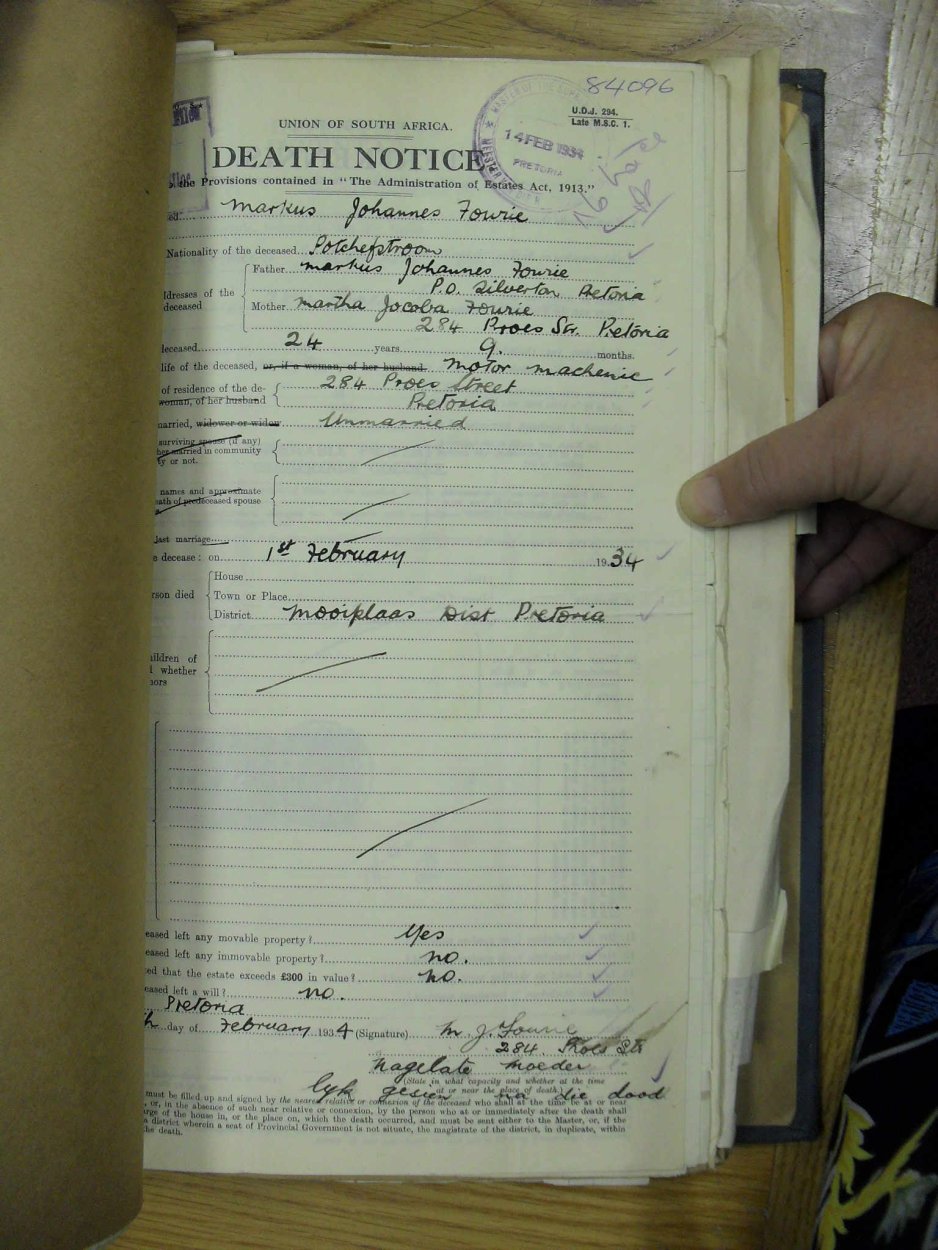 84096
U.D.J. 294.
Late M.S.C. 1.
UNION OF SOUTH AFRICA.
MASTER OF THE
14 FEB 1934
PRETORIA
MEESTER
DEATH NOTICE
the Provisions contained in "The Administration of Estates Act, 1913."
Markus Johannes Fourie
Nationality of the deceased Potchefstroom
ddresses of the deceased
Father Markus Johannes Fourie
P.O. Silverton Pretoria
Mother Martha Jocoba Fourie
284 Proes Str. Pretoria
deceased 24 years 9. months.
life of the deceased, or, if a woman, of her husband motor machenic
of residence of the de- 284 Proes Street
woman, of her husband Pretoria
arried, widower or widow Unmarried
surviving spouse (if any)
her married in community
ty or not.
names and approximate
eath of predeceased spouse
last marriage
e decease: on 1st February 1934
House
rson died Town or Place
District Mooiplaas Dist Pretoria
hildren of
whether
nors
eased left any movable property? Yes
eased left any immovable property? no.
ted that the estate exceeds £300 in value? no.
eased left a will? no.
Pretoria
th day of February 1934 (Signature) M. J. Fourie
284 Proes Str
Nagelate moeder
(State in what capacity and whether at the time
at or near the place of death.)
lyk gesien na die dood
must be filled up and signed by the nearest relative or connexion of the deceased who shall at the time be at or near
, or, in the absence of such near relative or connexion, by the person who at or immediately after the death shall
rge of the house in, or the place on, which the death occurred, and must be sent either to the Master, or, if the
a district wherein a seat of Provincial Government is not situate, the magistrate of the district, in duplicate, within
he death.